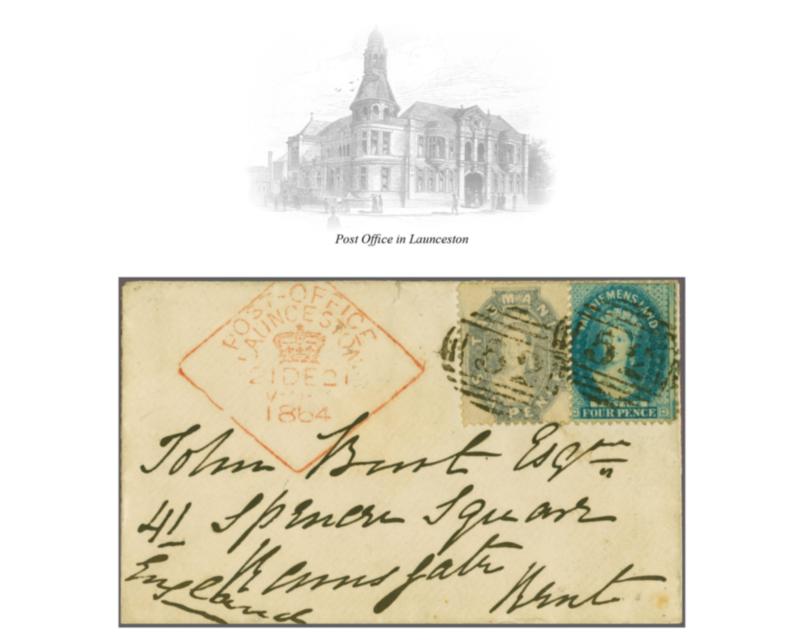 Post Office in Launceston
POST-OFFICE
LAUNCESTON
21 DE 21
1864
EMAN
PEN
VAN DIEMENS LAND
POSTAGE
FOUR PENCE
John Burt Esqre
41 Spencer Square
Ramsgate
England Kent